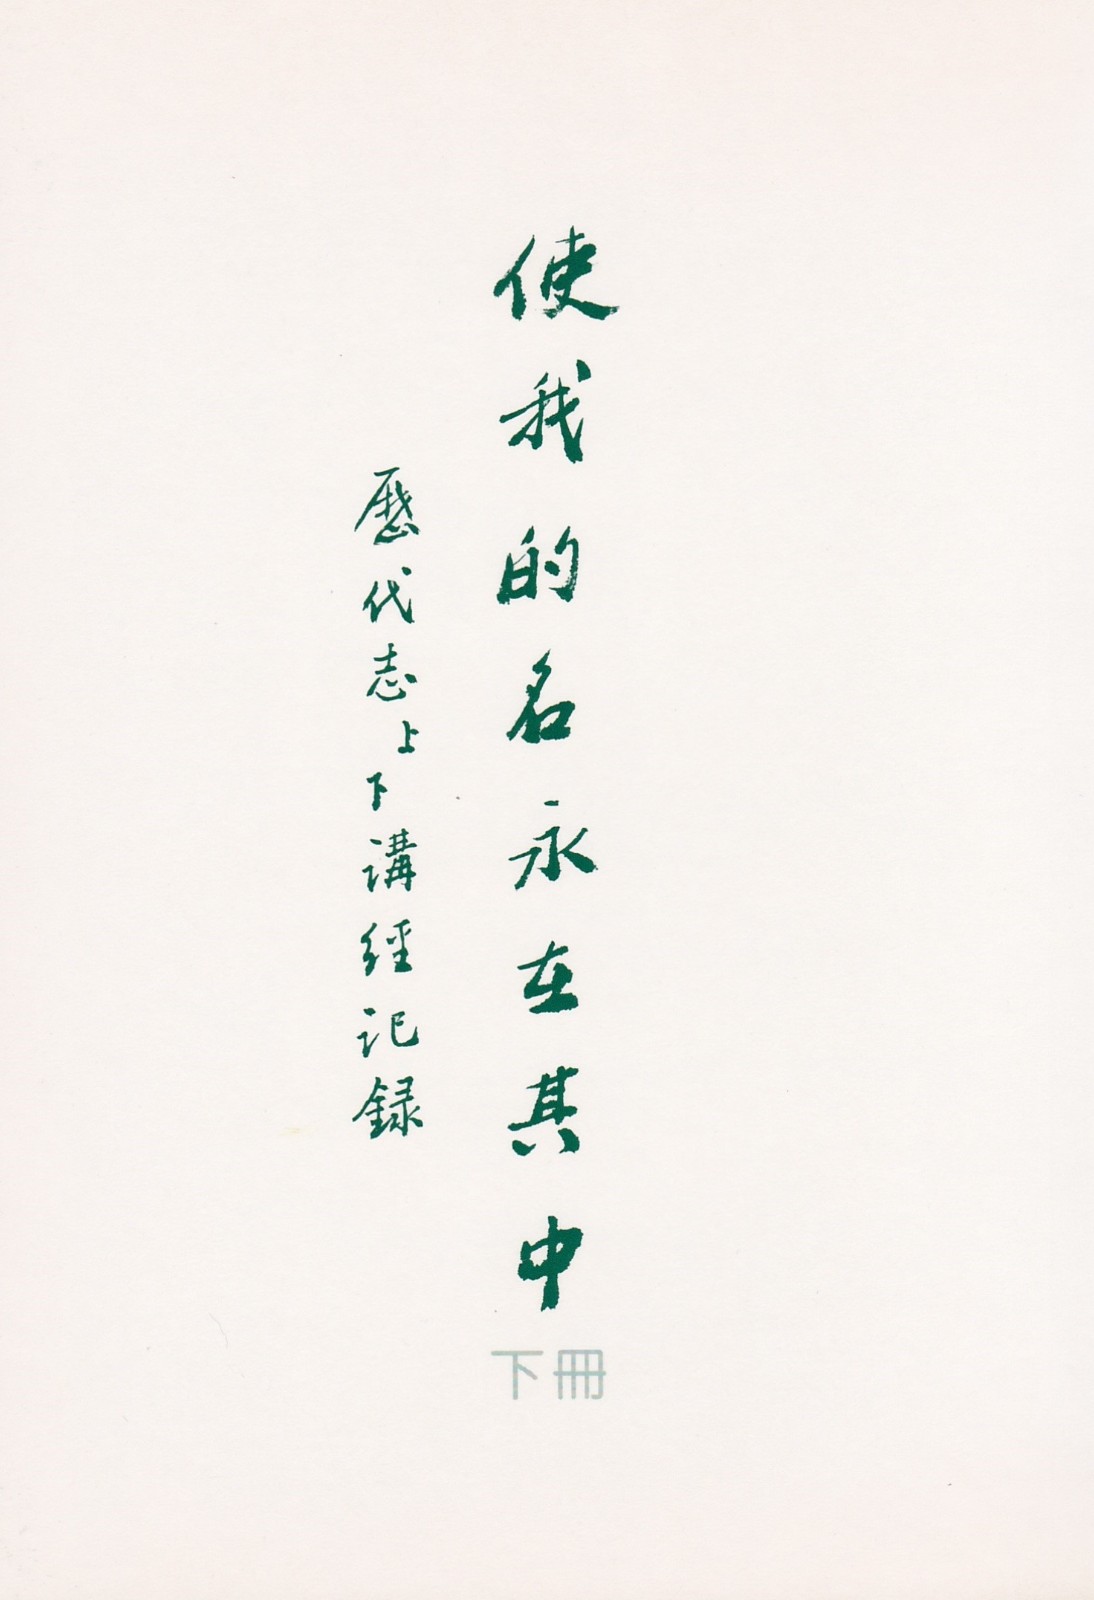 使我的名永在其中
歷代志上下講經記録
下冊